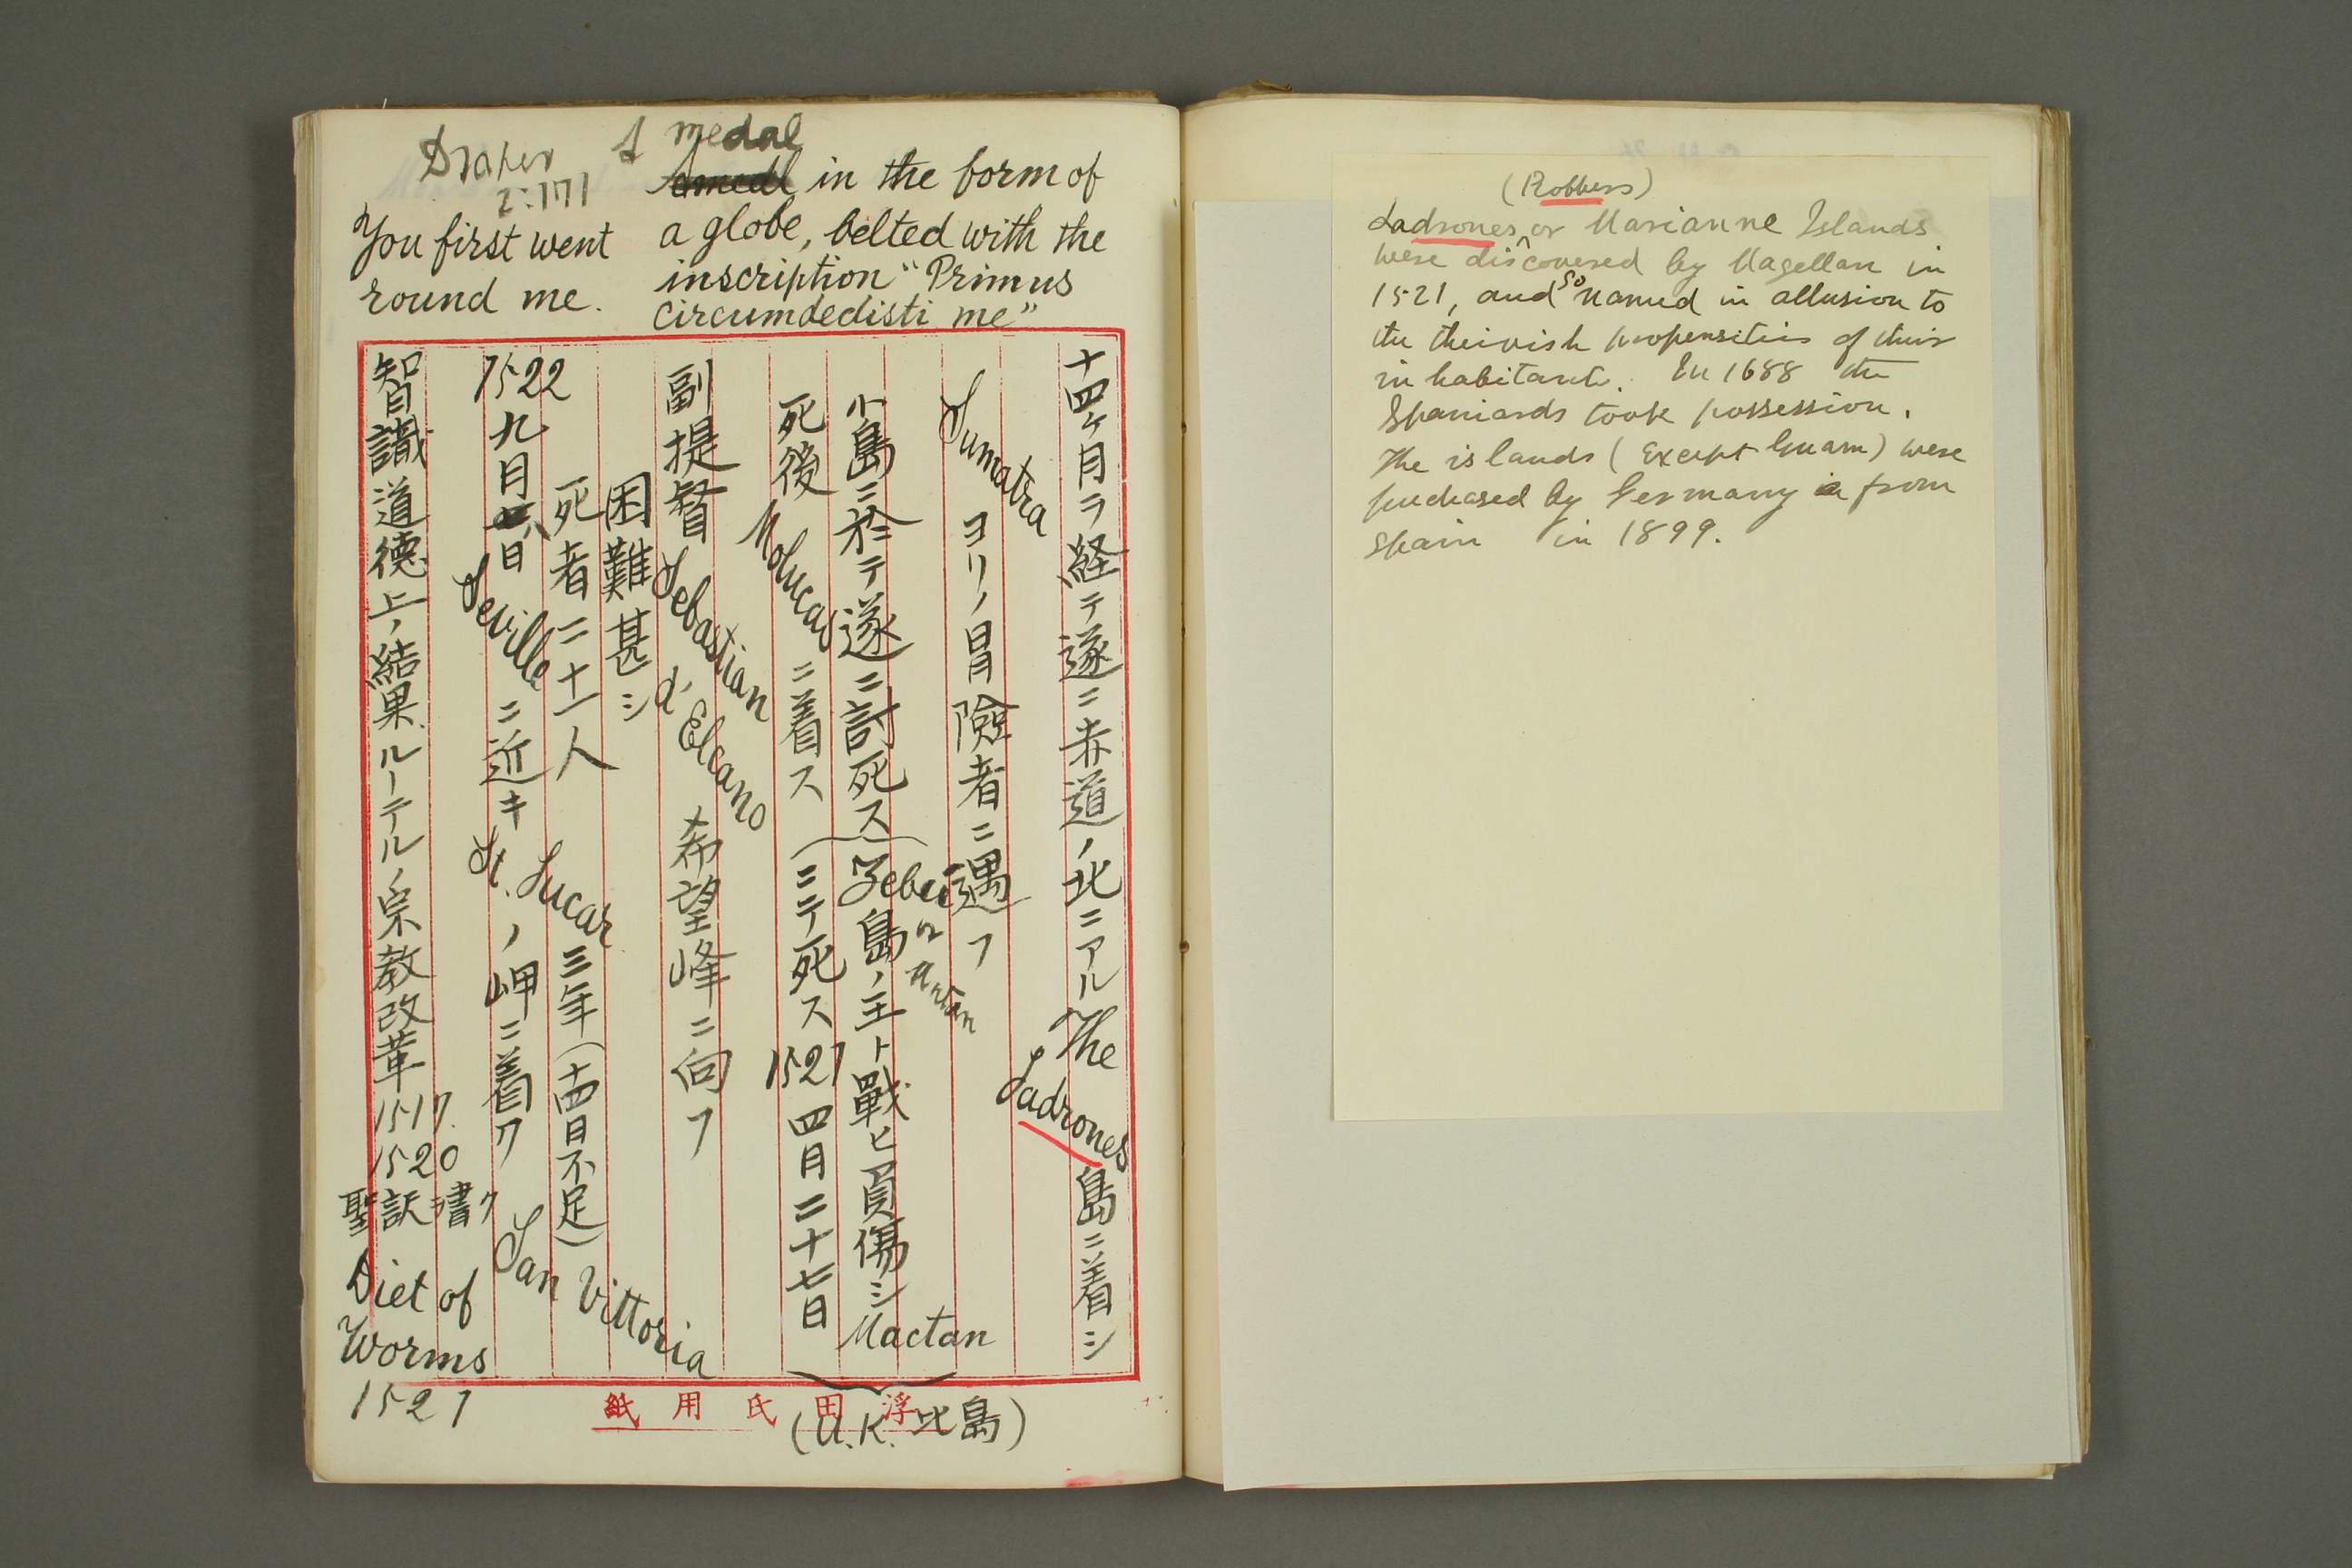 Draper
2:171
You first went
round me.
A medal
in the form of
a globe, belted with the
inscription "Primus
circumdedisti me"
十四ヶ月ヲ経テ遂ニ赤道ノ北ニアル The Ladrones 島ニ着シ
Sumatra ヨリノ冒險者ニ遇フ
小島ニ於テ遂ニ討死ス (Zebu 島ノ王ト戰ヒ負傷シ Mactan
ニテ死ス 1521 四月二十七日
死後 Molucas ニ着ス
副提督 Sebastian d'Elcano 希望峰ニ向フ
困難甚シ
死者二十一人
三年(十四日不足)
1522 九月 日 Seville ニ近キ St. Lucar ノ岬ニ着ク San Vittoria
智識道德上ノ結果 ルーテルノ宗教改革 1517.
1520
聖 訳 書ク
Diet of
Worms
1521
(U.K. 比島)
浮田氏用紙
(Robbers)
Ladrones, or Marianne Islands
were discovered by Magellan in
1521, and so named in allusion to
the theivish propensities of their
inhabitants. In 1688 the
Spaniards took possession.
The islands (except Guam) were
purchased by Germany from
Spain in 1899.